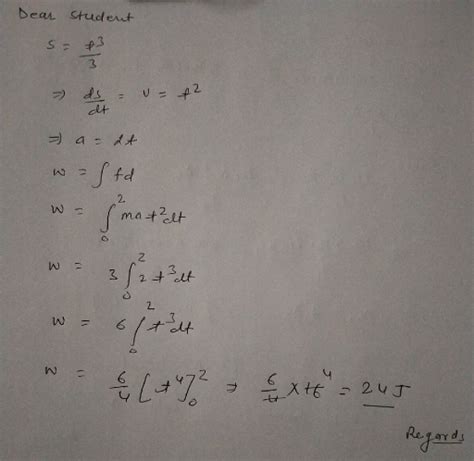 Dear student
s = t³/3
⇒ ds/dt = v = t²
⇒ a = 2t
w = ∫ fd
w = ∫₀² ma t² dt
w = 3 ∫₀² 2 t³ dt
w = 6 ∫₀² t³ dt
w = 6/4 [t⁴]₀² ⇒ 6/4 × 16 4 = 24 J
Regards